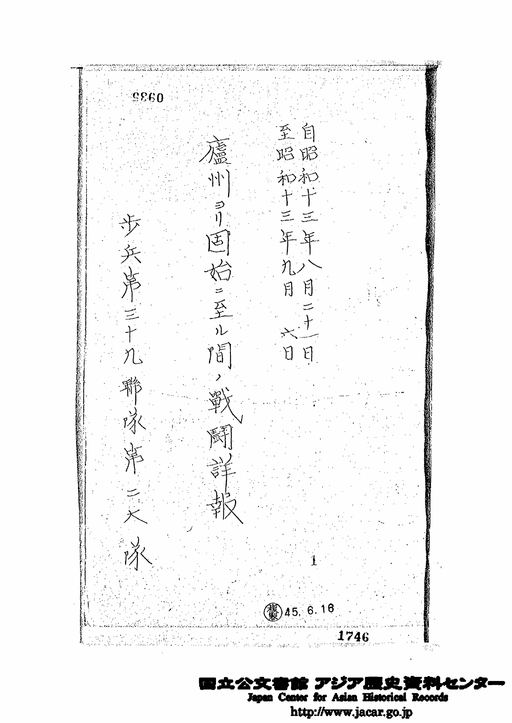 0935
自昭和十三年八月二十一日
至昭和十三年九月六日
廬州ヨリ固始ニ至ル間ノ戰鬪詳報
歩兵第三十九聯隊第二大隊
1
複製 45.6.16
1746
国立公文書館 アジア歴史資料センター
Japan Center for Asian Historical Records
http://www.jacar.go.jp